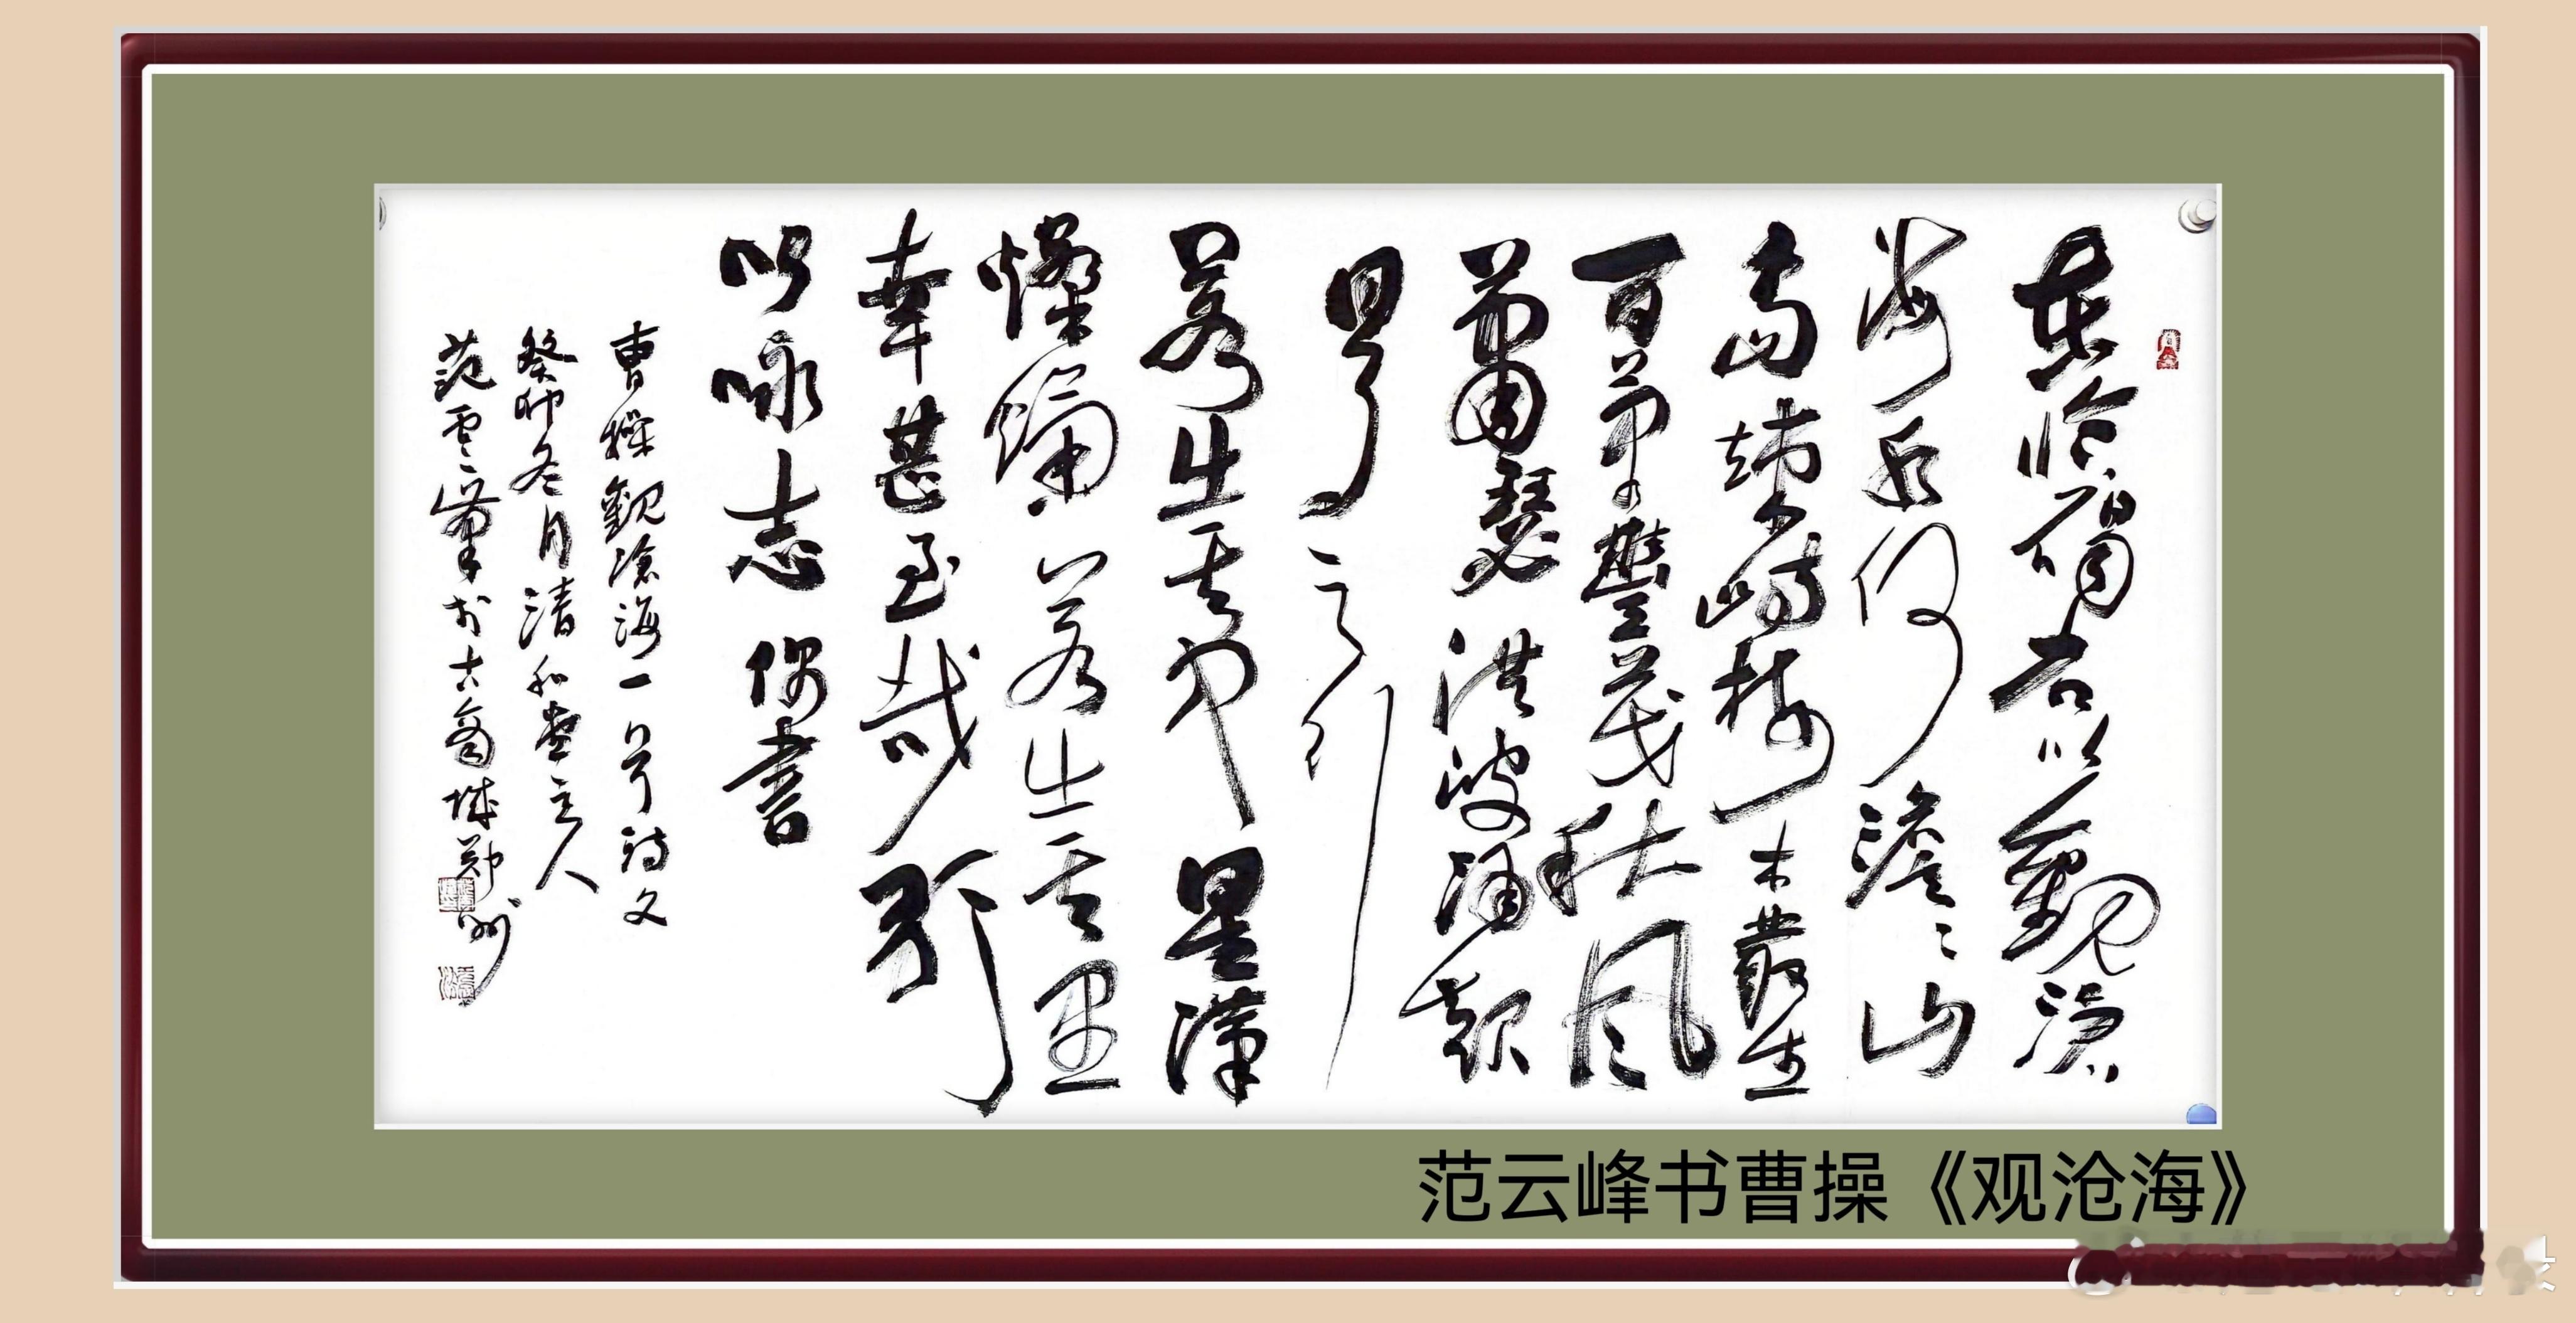 東臨碣石以觀滄
海水何澹々山
島竦峙樹木叢生
百草豐茂秋風
蕭瑟洪波涌起
日月之行
若出其中星漢
燦爛若出其里
幸甚至哉歌
以咏志偶書
曹操觀滄海一首詩文
癸卯冬月清和堂主人
范雲峰於古商城鄭州
范云峰书曹操《观沧海》